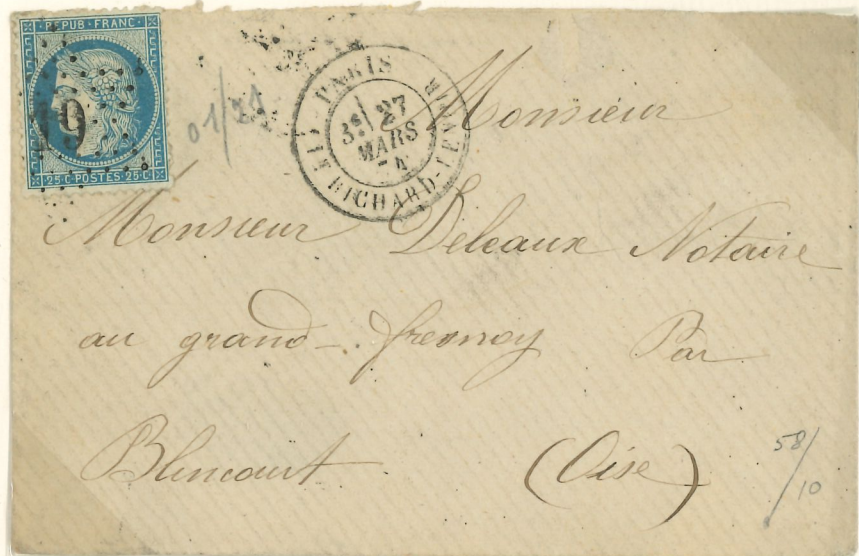 REPUB · FRANC ·
19
25 · C · POSTES · 25 · C ·
01/21
PARIS
27
MARS
RICHARD-LENOIR
Monsieur
Monsieur Deleaux Notaire
au grand-fresnoy Par
Blincourt (Oise)
58/10